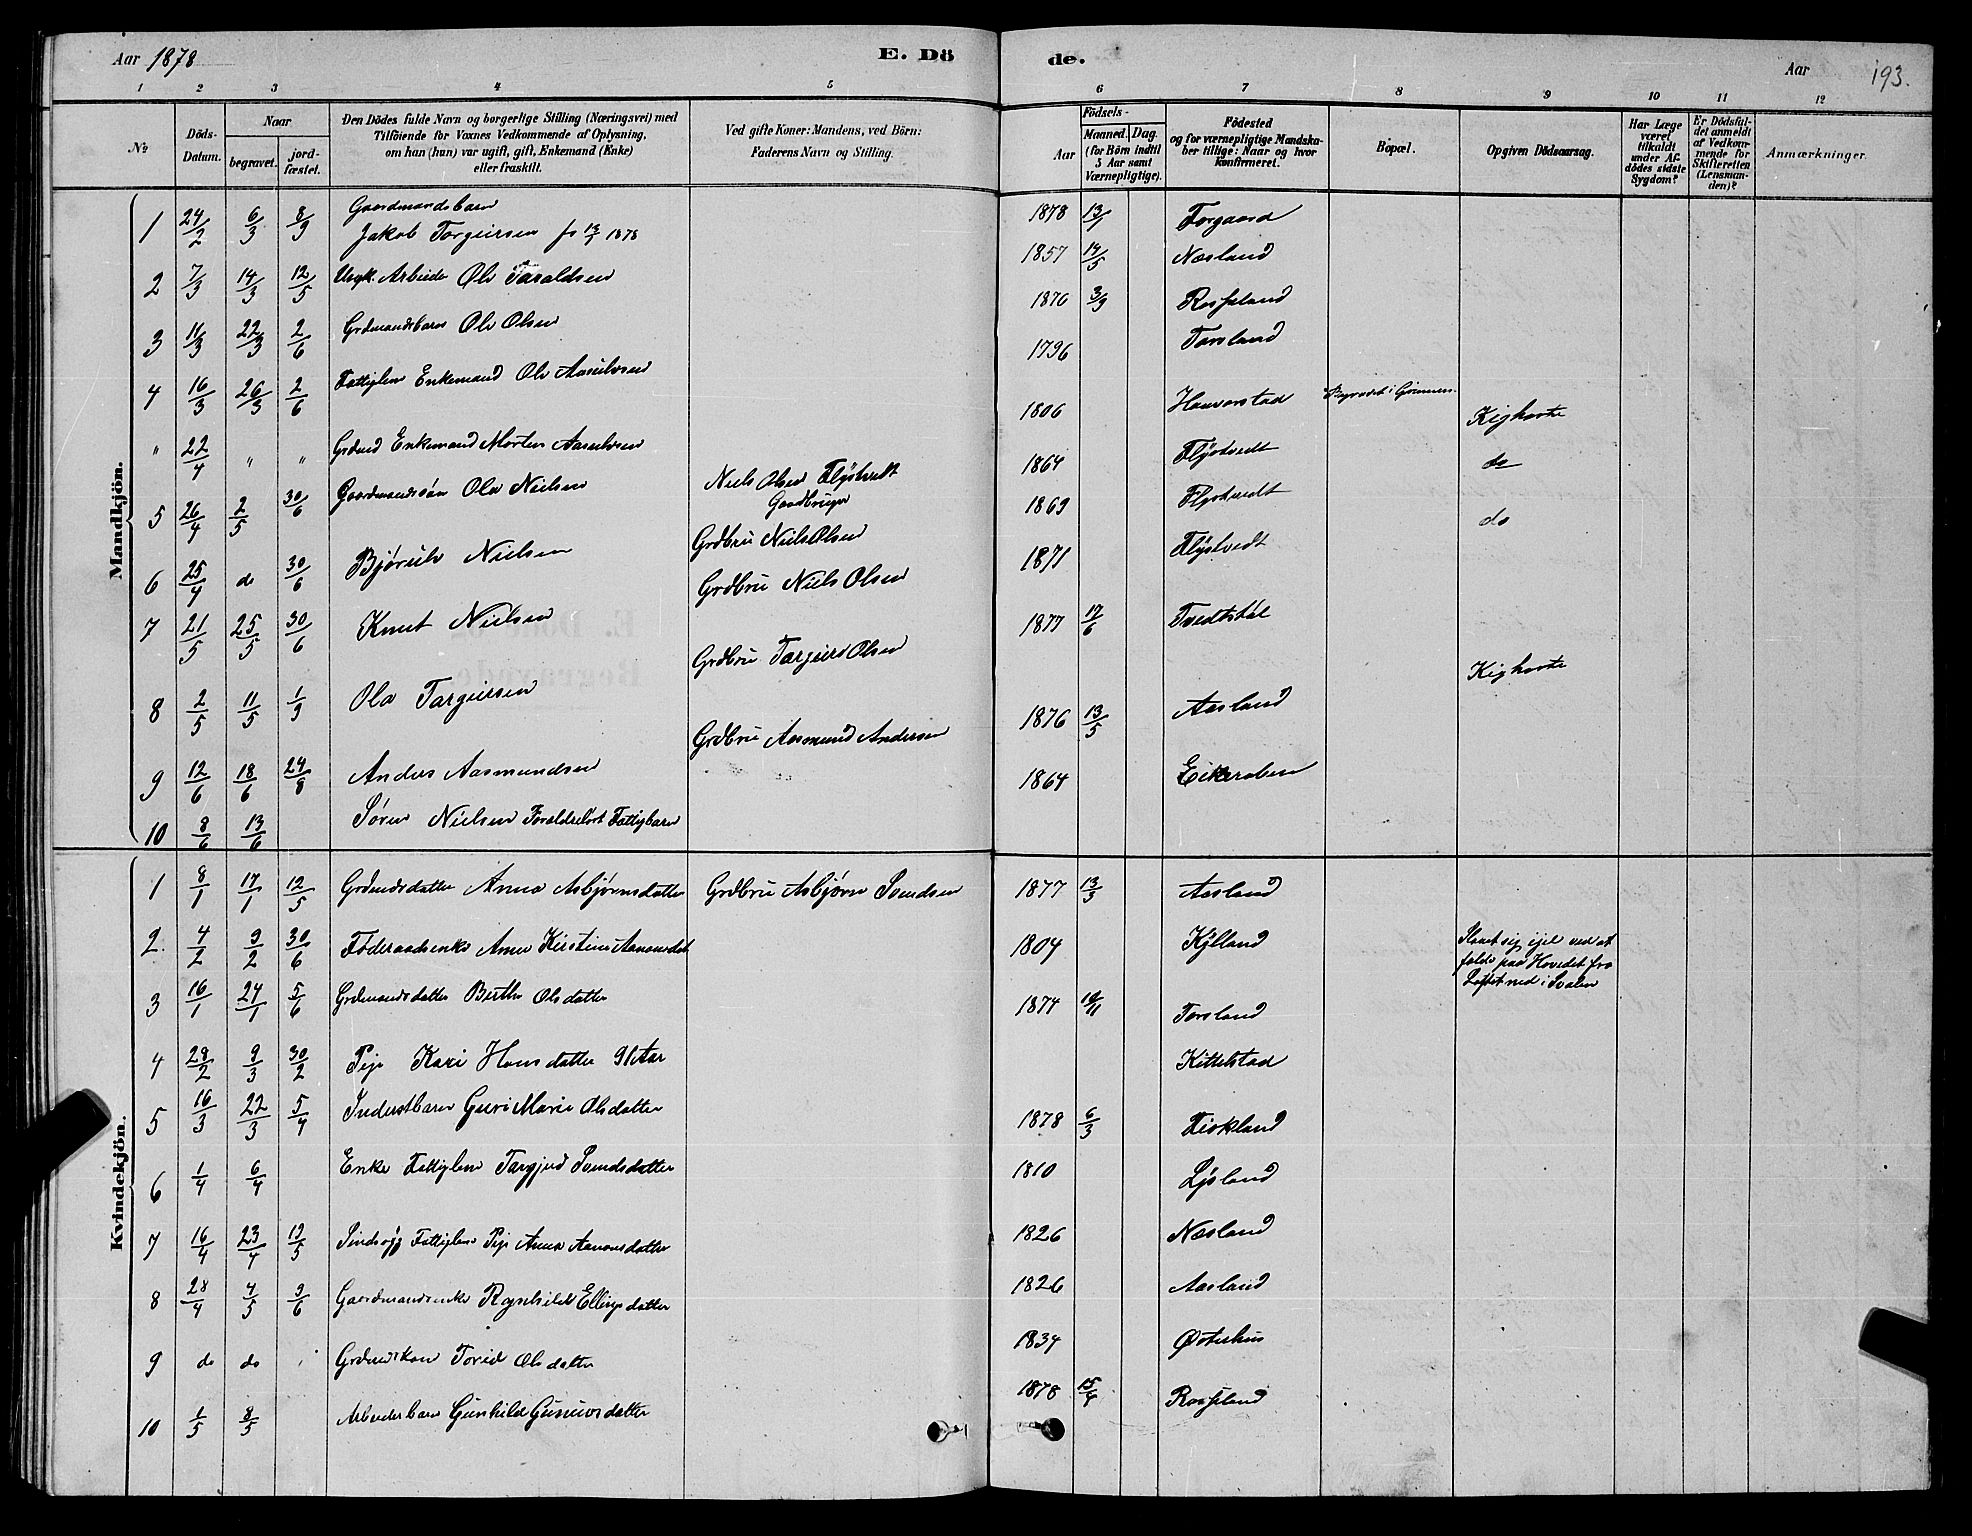 Aar 1878
E. Dö
de.
Aar
193.
1 2 3 4 5 6 7 8 9 10 11 12
No
Döds-
Datum.
Naar
begravet.
jord-
fæstet.
Den Dödes fulde Navn og borgerlige Stilling (Næringsvei) med
Tilföiende for Voxnes Vedkommende af Oplysning,
om han (hun) var ugift, gift, Enkemand (Enke)
eller fraskilt.
Ved gifte Koner: Mandens, ved Börn:
Faderens Navn og Stilling.
Födsels-
Aar
Maaned. Dag.
(for Börn indtil
5 Aar samt
Værnepligtige).
Födested
og for værnepligtige Mandska-
ber tillige: Naar og hvor
konfirmeret.
Bopæl.
Opgiven Dödsaarsag.
Har Læge
været
tilkaldt
under Af-
dödes sidste
Sygdom?
Er Dödsfal-
det anmeldt
af Vedkom-
mende for
Skifteretten
(Lensman-
den)?
Anmærkninger.
Mandkjön.
1 24/2 6/3 8/9 Gaardmandsbarn
Jakob Torgeirsen fs 13/1 1878 1878 13/1 Forgaard
2 7/3 14/3 12/5 Ungk. Arbeider Ole Taraldsen 1857 14/5 Næsland
3 11/3 22/3 2/6 Grdmandsbarn Ole Olsen 1876 3/9 Rosseland
4 16/3 26/3 2/6 Fattiglem Enkemand Ole Aasulvsen 1796 Torsland
" 22/4 " " Grdmd Enkemand Morten Aasulvsen 1806 Haverstad
5 26/4 2/5 30/6 Gaardmandssøn Ola Nielsen Niels Olsen Flystvedt
Gaardbruger 1864 Flystvedt Kighoste
6 25/4 do 30/6 Bjørulv Nielsen Grdbru Niels Olsen 1869 Flystvedt do
7 21/5 25/5 30/6 Knut Nielsen Grdbru Niels Olsen 1871 Flystvedt do
8 2/5 11/5 1/9 Ola Targeirsen Grdbru Targeird Olsen 1877 17/6 Tvedtstøl
9 12/6 18/6 24/8 Anders Aasmundsen Grdbru Aasmund Andersen 1876 13/5 Aasland Kighoste
10 8/6 13/6 Søren Nielsen Forældreløst Fattigbarn 1864
Kvindekjön.
1 8/1 17/1 12/5 Grdmdsdatter Anna Asbjørnsdatter Grdbru Asbjørn Svendsen 1877 13/3 Aasland
2. 4/2 9/2 30/6 Føderaadsenke Anne Kirstine Aanonsdat 1804 Kylland Slaaet sig ihjel ved at
falde paa Hovedet fra
Loftet ned i Svalen
3 16/1 24/1 5/6 Grdmandsdatter Berthe Olsdatter 1874 10/11 Torsland
4 28/2 9/3 30/2 Pige Kari Hansdatter 91 Aar Kittelstad
5 16/3 22/3 5/4 Inderstbarn Guri Marie Olsdatter 1878 6/3 Fiskland
6 1/4 6/4 Enke Fattiglem Targjerd Svendsdatter 1810 Lysland
7 16/4 23/4 19/5 Sindssyg Fattiglem Pige Anna Aanonsdatter 1826 Næsland
8 28/4 4/5 9/6 Gaardmandsenke Ragnhild Ellingsdatter 1826 Aasland
9 do do Grdmdskone Torid Olsdatter 1834 Østerhus
10 1/5 8/5 Arbeiderbarn Gunhild Gunuvsdatter 1878 15/4 Rosseland